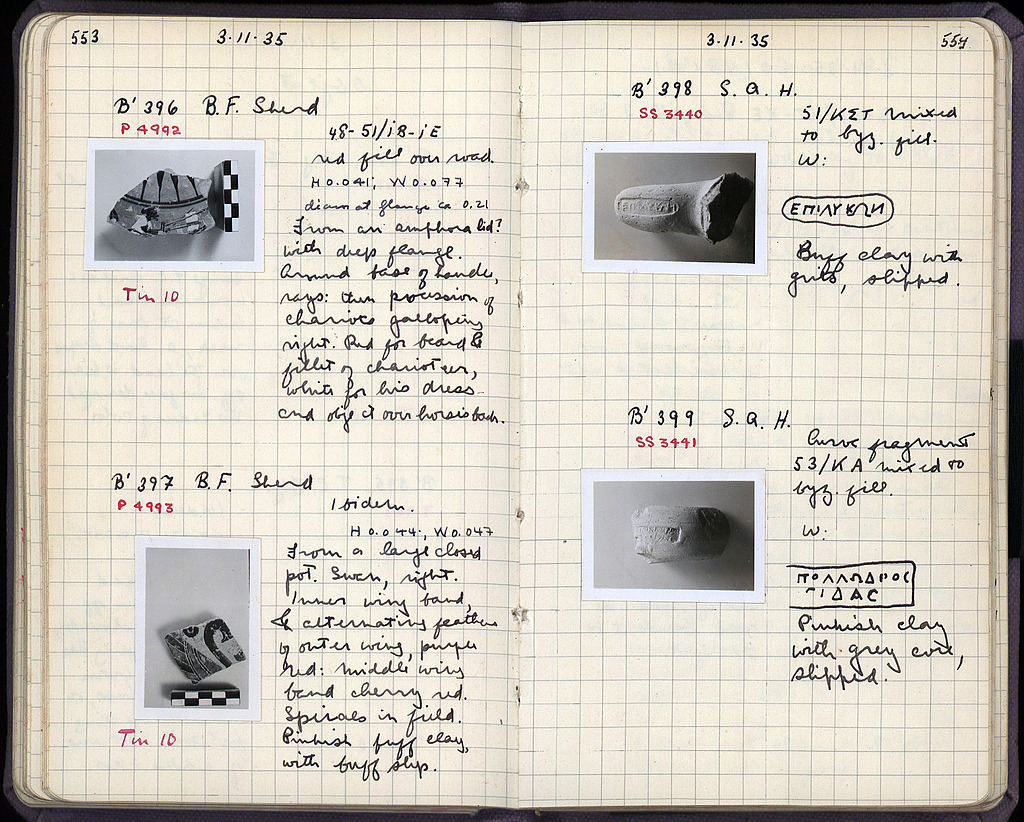 553
3·11·35
B' 396 B.F. Sherd
P 4992
48-51/ΙΒ-ΙΕ
red fill over road.
H 0.041; W 0.077
diam at flange ca 0.21
From an amphora lid?
with deep flange.
Around base of handle,
rays: then procession of
chariots galloping
right. Red for beard &
fillet of charioteer,
white for his dress
and object over horse's back.
Tin 10
B' 397 B.F. Sherd
P 4993
Ibidem.
H 0.044; W 0.047
From a large closed
pot. Swan, right.
Inner wing band,
& alternating feathers
of outer wing, purple
red: middle wing
band cherry red.
Spirals in field.
Pinkish buff clay,
with buff slip.
Tin 10
554
3·11·35
B' 398 S.A.H.
SS 3440
51/ΚΣΤ mixed
to byz. fill.
W:
ΕΠΙΛΥΚΩΝ
Buff clay with
grits, slipped.
B' 399 S.A.H.
SS 3441
Curve fragment
53/ΚΑ mixed to
byz. fill.
W:
Pinkish clay
with grey core,
slipped.